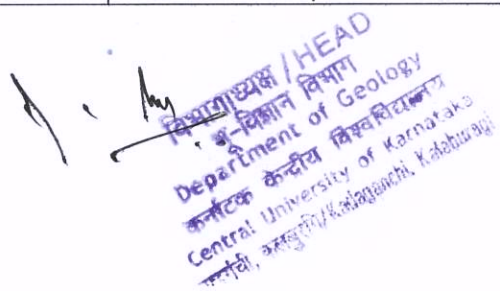 विभागाध्यक्ष / HEAD
भू-विज्ञान विभाग
Department of Geology
कर्नाटक केन्द्रीय विश्वविद्यालय
Central University of Karnataka
कलबुरगि/Kadaganchi, Kalaburagi